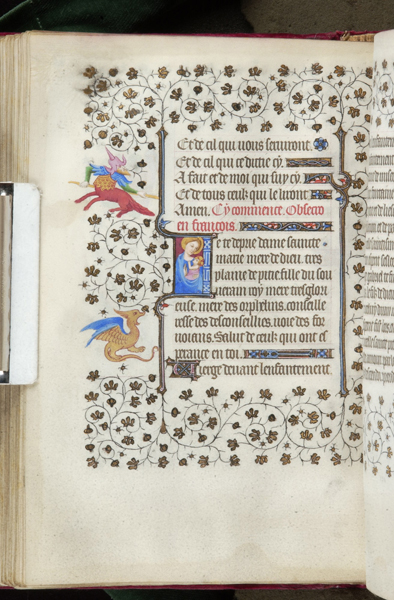 Et de cil qui vous serviront.
Et de cil qui ce dictie cy.
A fait et de moi qui suy cy
Et de tous ceulx qui le liront
Amen. Cy commence. Obsecro
en francois.
e te deprie dame saincte
marie mere de dieu. tres
plaine de pitie fille du sou
uerain roy mere tresglori
euse. mere des orphelins. conseille
resse des desconseillies. voie des for
uoians. Salut de ceulx qui ont es
perance en toi.
ierge deuant lenfantement